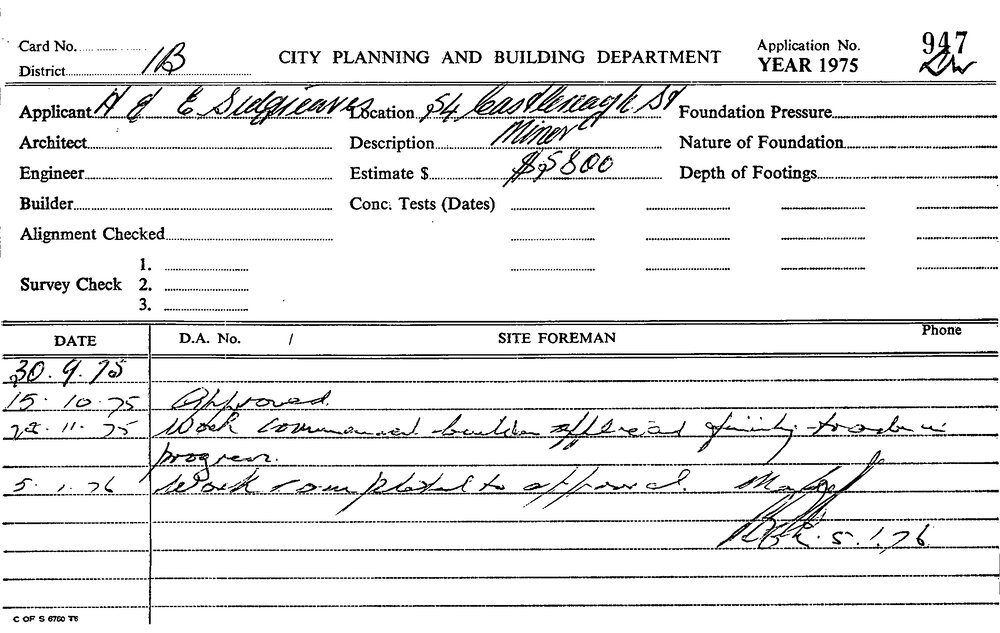 Card No.
District 1B
CITY PLANNING AND BUILDING DEPARTMENT
Application No. 947
YEAR 1975
Applicant H & E Sidgreaves
Location 54 Castlereagh St
Foundation Pressure
Architect
Description Minor
Nature of Foundation
Engineer
Estimate $ $5800
Depth of Footings
Builder
Conc. Tests (Dates)
Alignment Checked
Survey Check 1.
2.
3.
DATE D.A. No. / SITE FOREMAN Phone
30.9.75
15.10.75 Approved.
28.11.75 Work commenced builder finishing trades in
progress.
5.1.76 Work completed to approval.
5.1.76
C OF S 6760 T6